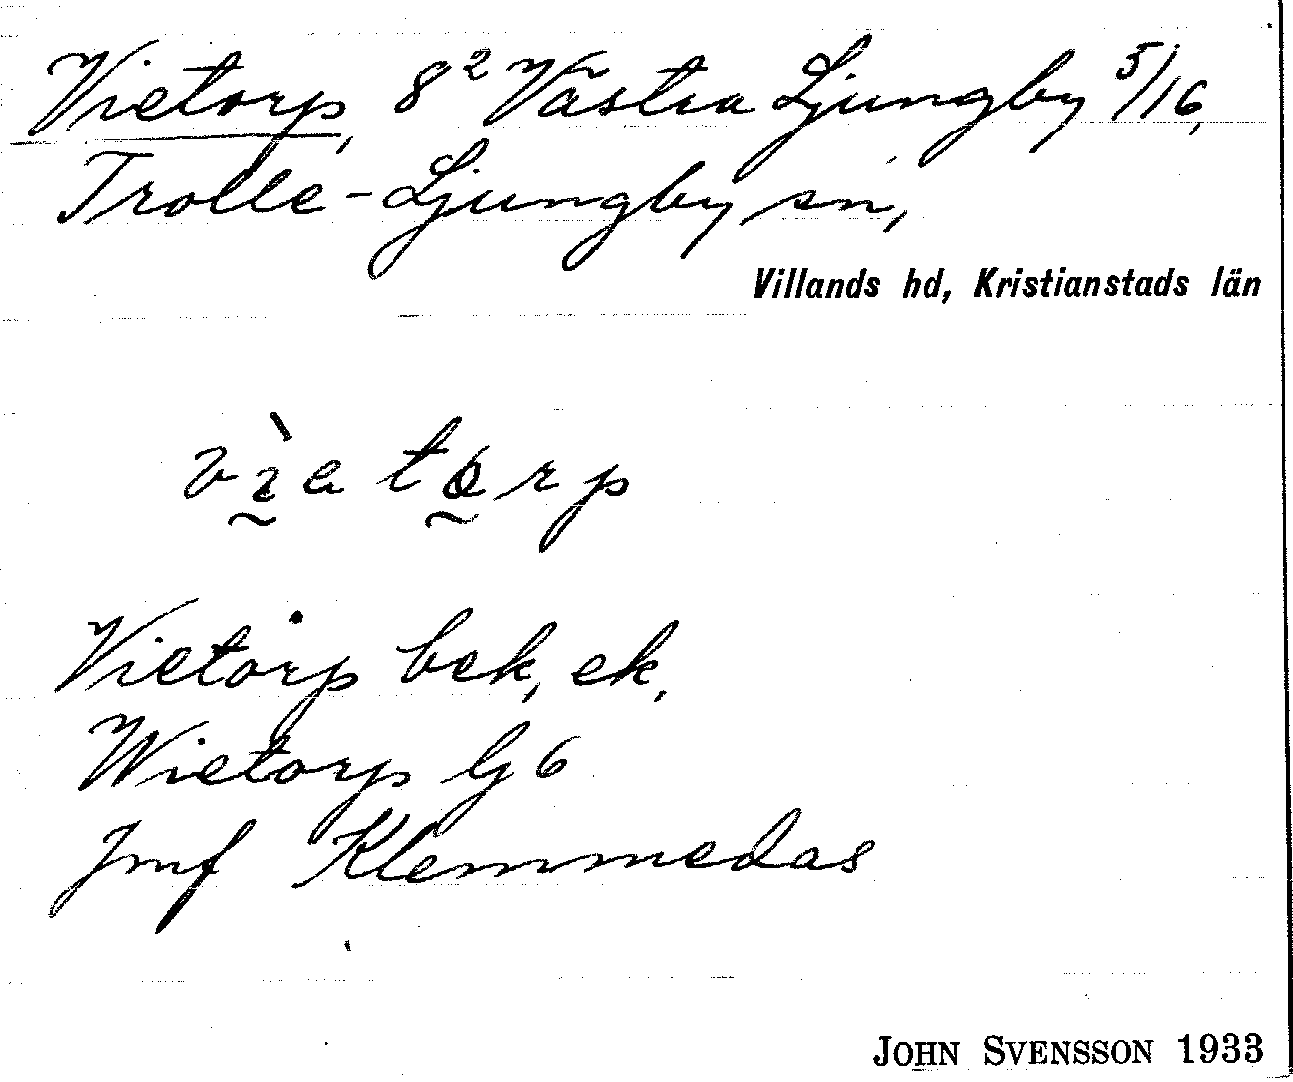 Vietorp, 8² Västra Ljungby 5/16,
Trolle-Ljungby sn,
Villands hd, Kristianstads län
vìatorp
Vietorp bek, ek.
Wietorp G6
Jmf Klemmedas
JOHN SVENSSON 1933